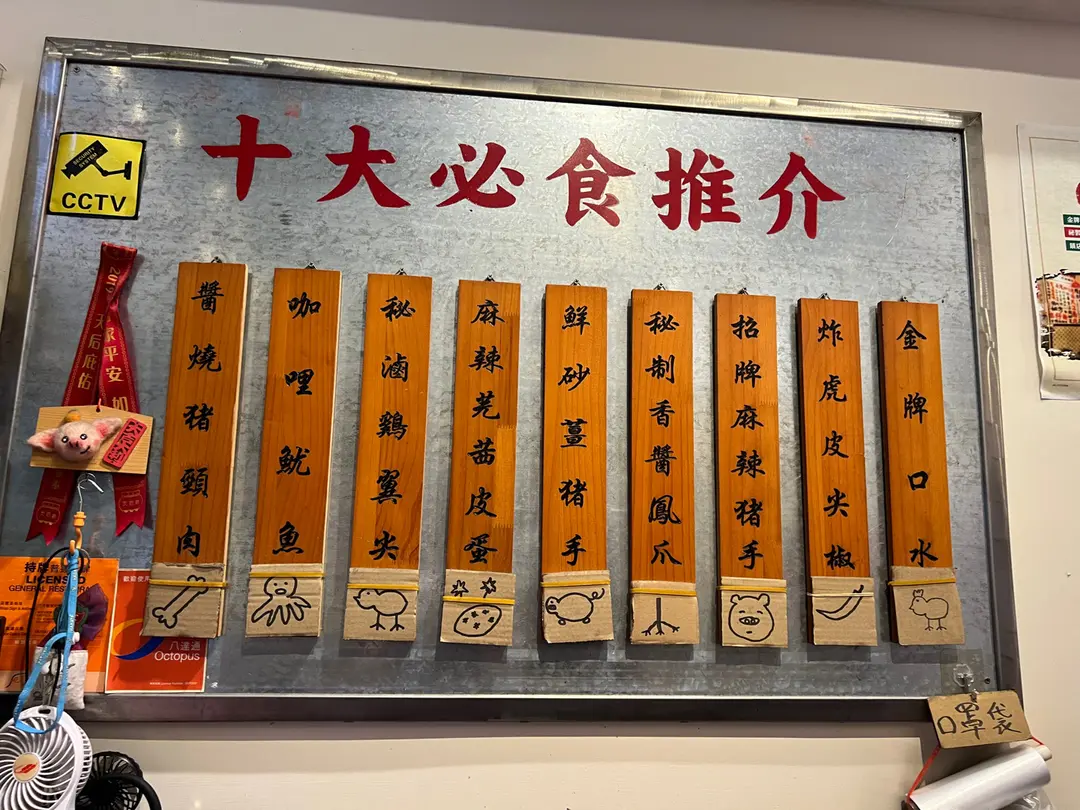 十大必食推介
SECURITY SYSTEM
CCTV
醬燒猪頸肉
咖哩魷魚
秘滷鷄翼尖
麻辣芫茜皮蛋
鮮砂薑猪手
秘制香醬鳳爪
招牌麻辣猪手
炸虎皮尖椒
金牌口水
天后庇佑
家平安
持牌
LICENSED
GENERAL REST
歡迎使用
八達通
Octopus
口罩袋
金牌